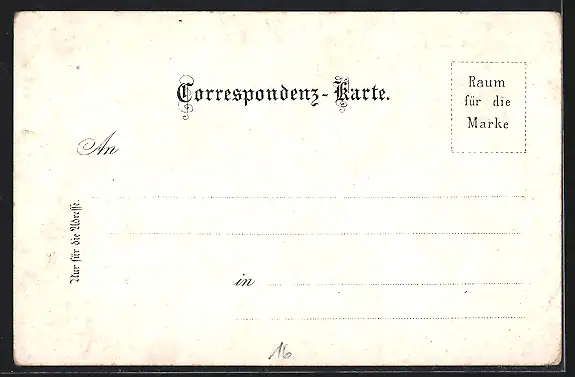 Correspondenz-Karte.
Raum
für die
Marke
An
Nur für die Adresse.
in
16